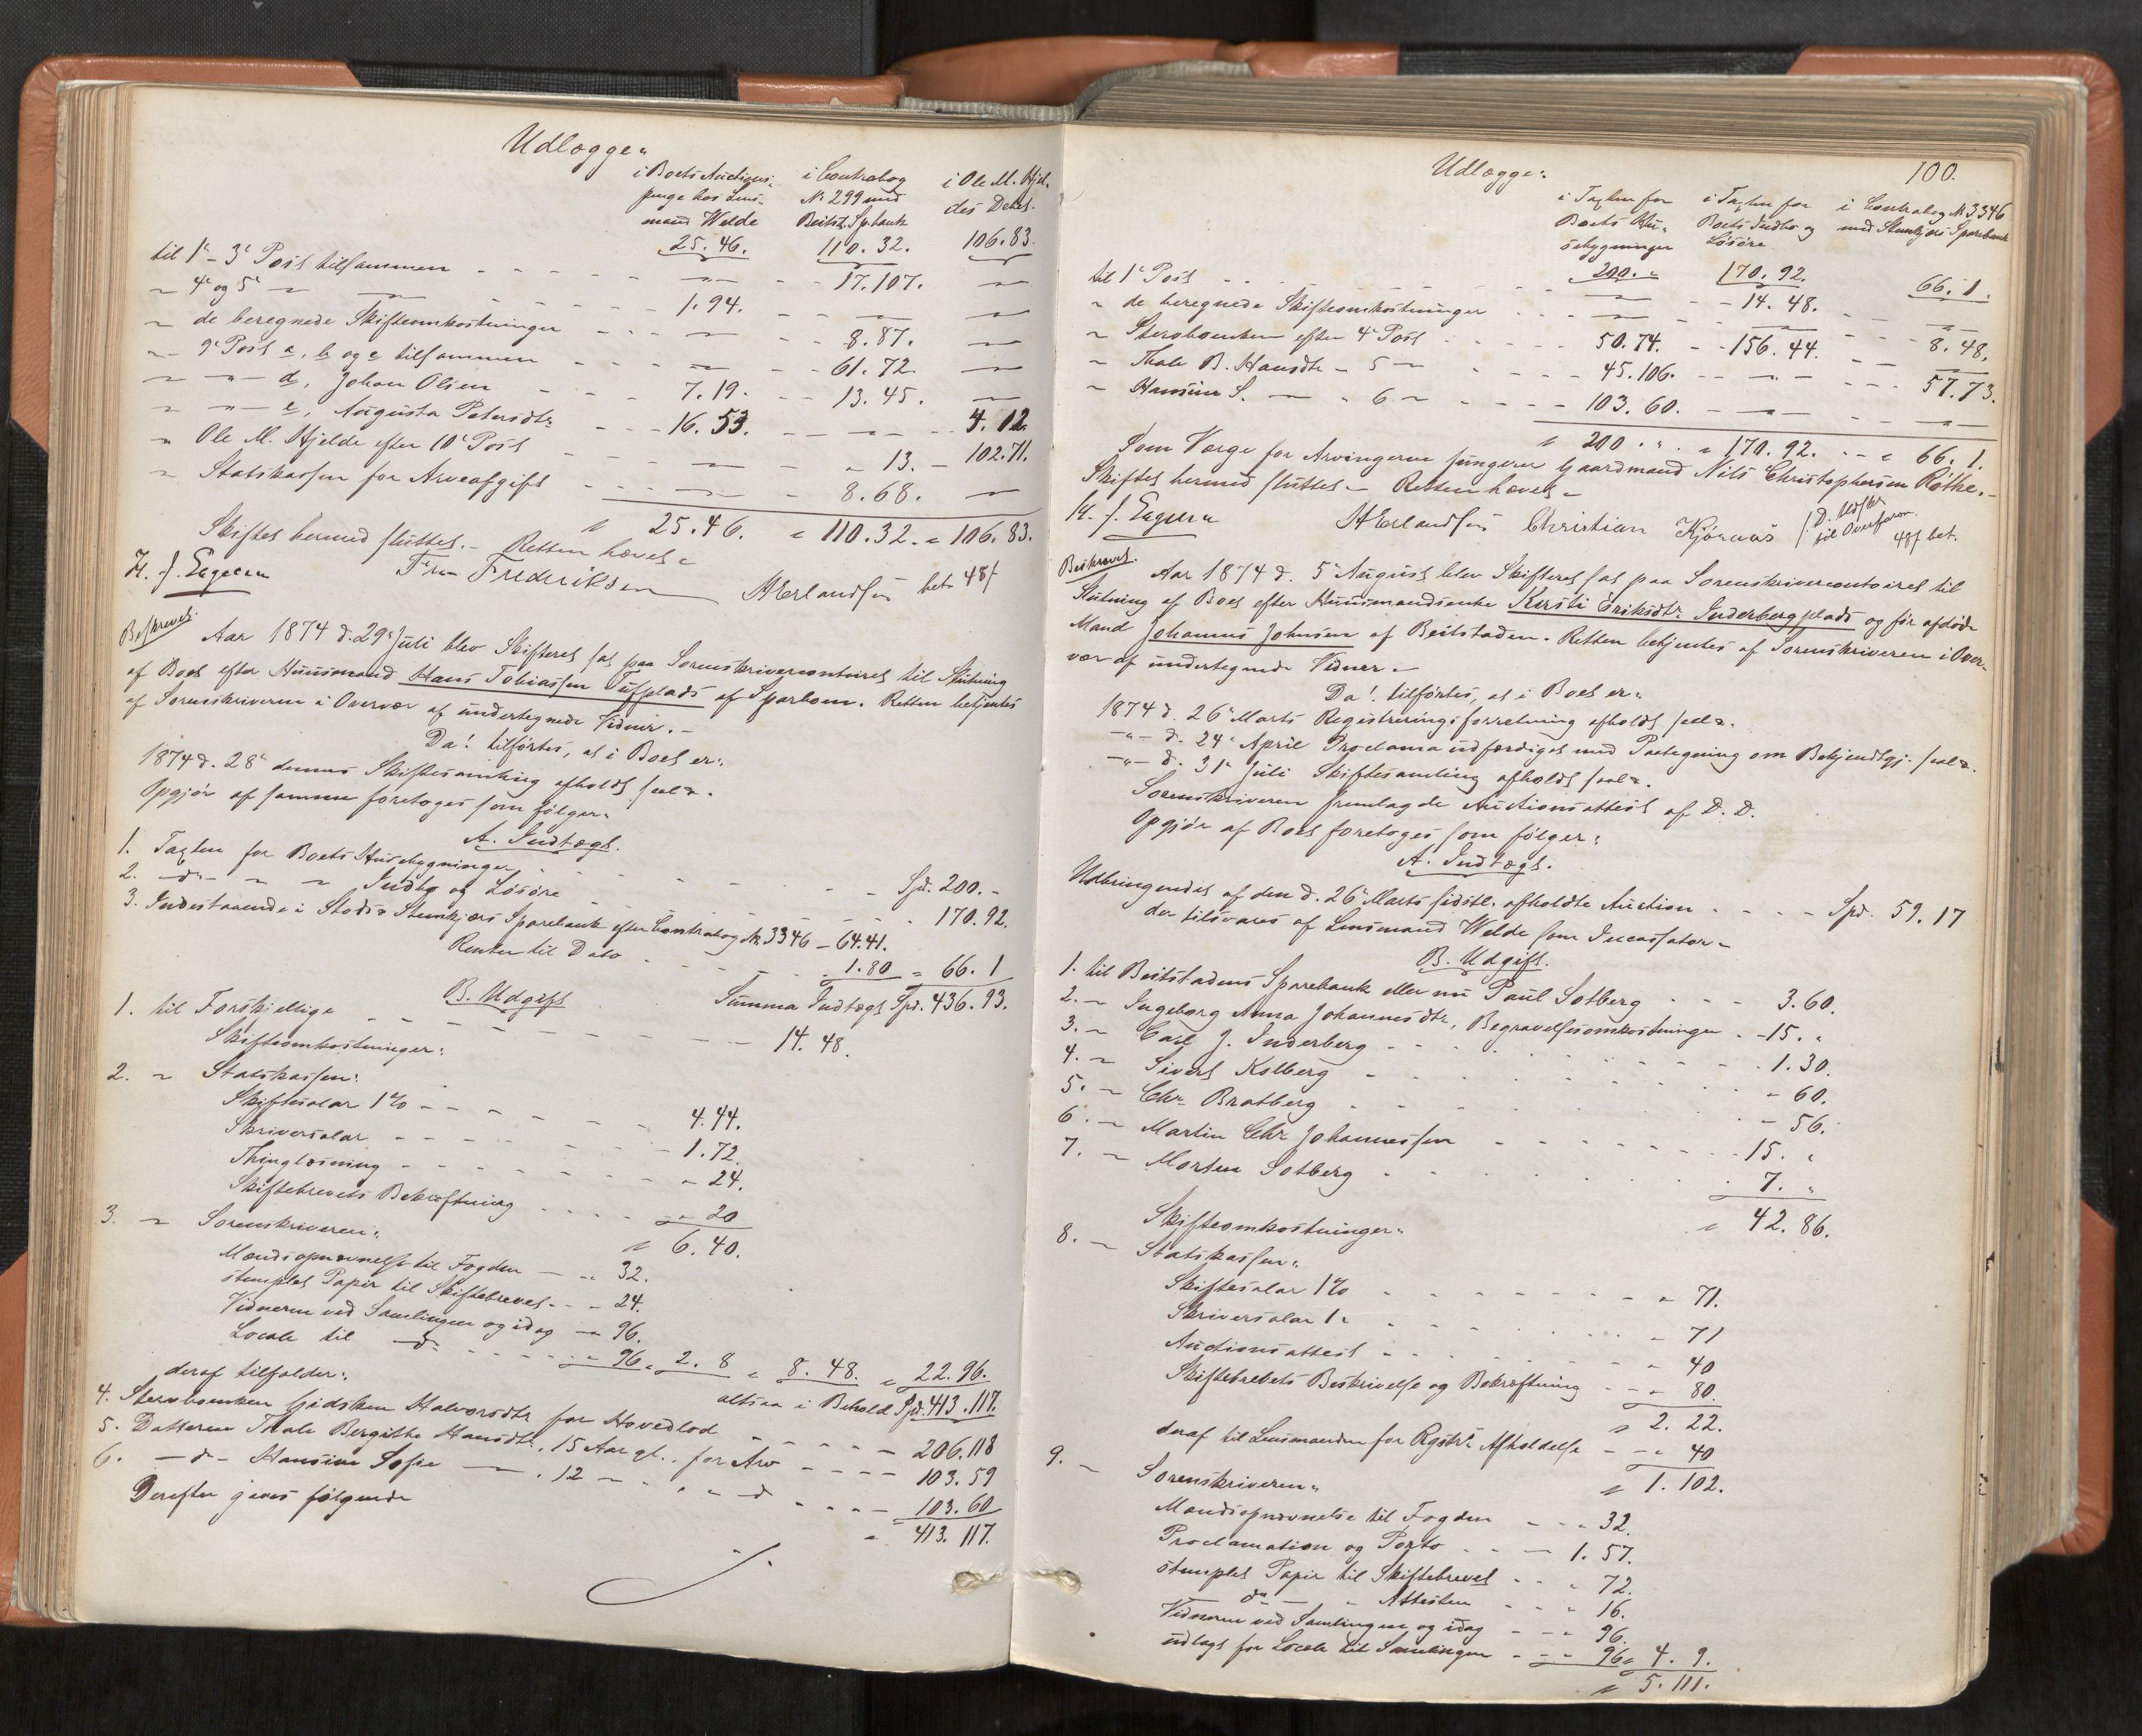 Udlægges
i Boets Auctions- i Contrabog i Ole M. Hjel-
penge hos Lens- No 299 med des Debet.
mand Welde Beitst. Sp.bank
25. 46. 110. 32. 106. 83.
til 1e - 3e Post tilsammen - - - 17. 107.
" 4e og 5e " - - 1. 94.
" de beregnede Skifteomkostninger - - - 8. 87.
" 9e Post a, b og c tilsammen - - - 61. 72.
" " - d, Johan Olsen - - 7. 19. - - 13. 45.
" " - e, Augusta Petersdtr - - 16. 53. - - 4. 12.
" Ole M. Hjelde efter 10e Post - - " 13. - 102. 71.
" Statskassen for Arveafgift - - 8. 68.
" 25. 46. " 110. 32. " 106. 83.
Skiftet hermed sluttet. - Retten hævet.
H. J. Eggen Fr. Frederiksen A Erlandsen bet 48 s
Beskrevet
Aar 1874 d. 29e Juli blev Skifteret sat paa Sorenskrivercontoiret til Slutning
af Boet efter Huusmand Hans Tobiassen Tufplads af Sparboen. Retten betjentes
af Sorenskriveren i Overvær af undertegnede Vidner. -
Da! tilførtes, at i Boet er:
1874 d. 28e dennes Skiftesamling afholdt
Opgjør af samme foretoges som følger:
A. Indtægt.
1. Taxten for Boets Huusebygninger - - - Spd. 200. -
2. - do - " " Indbo og Løsøre - - - 170. 92.
3. Indestaaende i Stods & Stenkjærs Sparebank efter Contrabog No 3346 - 64. 41.
Renter til Dato - - - 1. 80 = 66. 1
Summa Indtægt Spd. 436. 93.
B. Udgift
1. til Forskjellige - - - 14. 48.
Skifteomkostninger:
2. " Statskassen:
Skiftesalar 1% - - - 4. 44.
Skriversalar - - - 1. 72.
Thinglæsning - - - " 24.
Skiftebrevets Bekræftning - - - " 20
" 6. 40.
3. " Sorenskriveren:
Mændsopnævnelse til Fogden - " 32.
stemplet Papir til Skiftebrevet - - " 24.
Vidnerne ved Samlingen og idag - " 96.
Locale til - do - - - " 96 " 2. 8 " 8. 48. " 22. 96.
altsaa i Behold Spd. 413. 117.
deraf tilfalder:
4. Stervboenken Gidsken Halvorsdtr for Hovedlod - - - 206. 118
5. Datteren Thale Bergitha Hansdtr, 15 Aar gl., for Arv - - - 103. 59
6. - do - Hansine Sofie - , 12 " " " do - - - 103. 60
" 413. 117.
Derefter gives følgende
100.
Udlægge:
i Taxten for i Taxten for i Contrabog No 3346
Boets Hu- Boets Indbo og med Stenkjærs Sparebank
sebygninger Løsøre
200. " 170. 92. 66. 1.
til 1e Post - - - 14. 48.
" de beregnede Skifteomkostninger - - - 8. 48.
" Stervboenken efter 4e Post - - - 50. 74. - - 156. 44.
" Thale B. Hansdtr - 5 " - - - 45. 106. - - - 57. 73.
" Hansine S. - " 6 " - - - 103. 60.
" 200. " " 170. 92. - - " 66. 1.
Som Værge for Arvingerne fungerer Gaardmand Nils Christophersen Røthe. -
Skiftet hermed sluttet - Retten hævet -
H. J. Eggen A Erlandsen Christian Kjønaas
til Overform.
48 s bet.
Beskrevet.
Aar 1874 d. 5e August blev Skifteret sat paa Sorenskrivercontoiret til
Slutning af Boet efter Huusmandsenke Kirsti Eriksdtr Inderbergplads og før afdøde
Mand Johannes Johnsen af Beitstaden. Retten betjentes af Sorenskriveren i Over-
vær af undertegnede Vidner. -
Da! tilførtes, at i Boet er:
1874 d. 26e Marts Registreringsforretning afholdt
- " - d. 24e April Proclama udfærdiget med Paategning om Bekjendtgj.
- " - d. 31e Juli Skiftesamling afholdt
Sorenskriveren fremlagde Auctionsattest af D. D.
Opgjør af Boet foretoges som følger:
A. Indtægt.
Udbringendet af den d. 26e Marts sidstl. afholdte Auction - - - Spd. 59. 17
der tilsvares af Lensmand Welde som Incassator -
B. Udgift.
1. til Beitstadens Sparebank eller nu Paul Solberg - - - 3. 60.
2. " Ingeborg Anna Johannesdtr, Begravelsesomkostninger - 15. "
3. " Carl J. Inderberg - - - 1. 30.
4. " Sivert Kolberg - - - " 60.
5. " Chr. Bratberg - - - " 56.
6. " Martin Chr Johannessen - - - 15. "
7. " Morten Solberg - - - 7. "
" 42. 86.
Skifteomkostninger:
8. " Statskassen:
Skiftesalar 1% - - - " 71.
Skriversalar 1 " - - - " 71
Auctionsattest - - - " 40
Skiftebrevets Beskrivelse og Bekræftning - - " 80.
" 2. 22.
deraf til Lensmanden for Rgstr. Afholdelse - - " 40
" 1. 102.
9. " Sorenskriveren:
Mændsopnævnelse til Fogden - - " 32.
Proclamation og Porto - - - 1. 57.
stemplet Papir til Skiftebrevet - - " 72.
do - " Attesten - - " 16.
Vidnerne ved Samlingen og idag - - " 96.
udlagt for Locale til Samlingen - - " 96 " 4. 9.
" 5. 111.